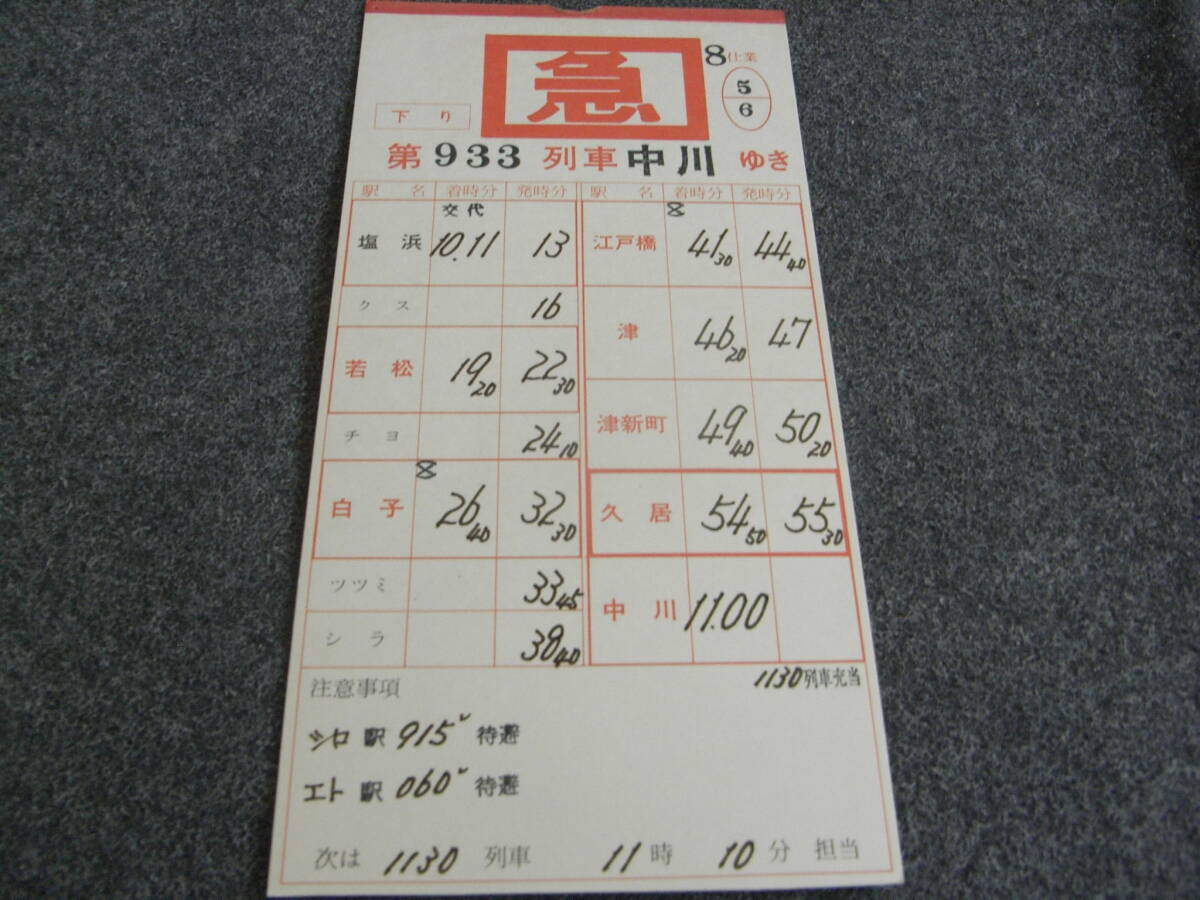 急
8仕業
5
6
下り
第933列車 中川 ゆき
駅名 着時分 発時分
交代
塩浜 10.11 13
クス 16
若松 19 20 22 30
チヨ 24 10
8
白子 26 40 32 30
ツツミ 33 45
シラ 38 40
駅名 着時分 発時分
8
江戸橋 41 30 44 40
津 46 20 47
津新町 49 40 50 20
久居 54 50 55 30
中川 11.00
1130列車充当
注意事項
シロ駅 915レ 待避
エト駅 060レ 待避
次は 1130 列車 11時 10分 担当